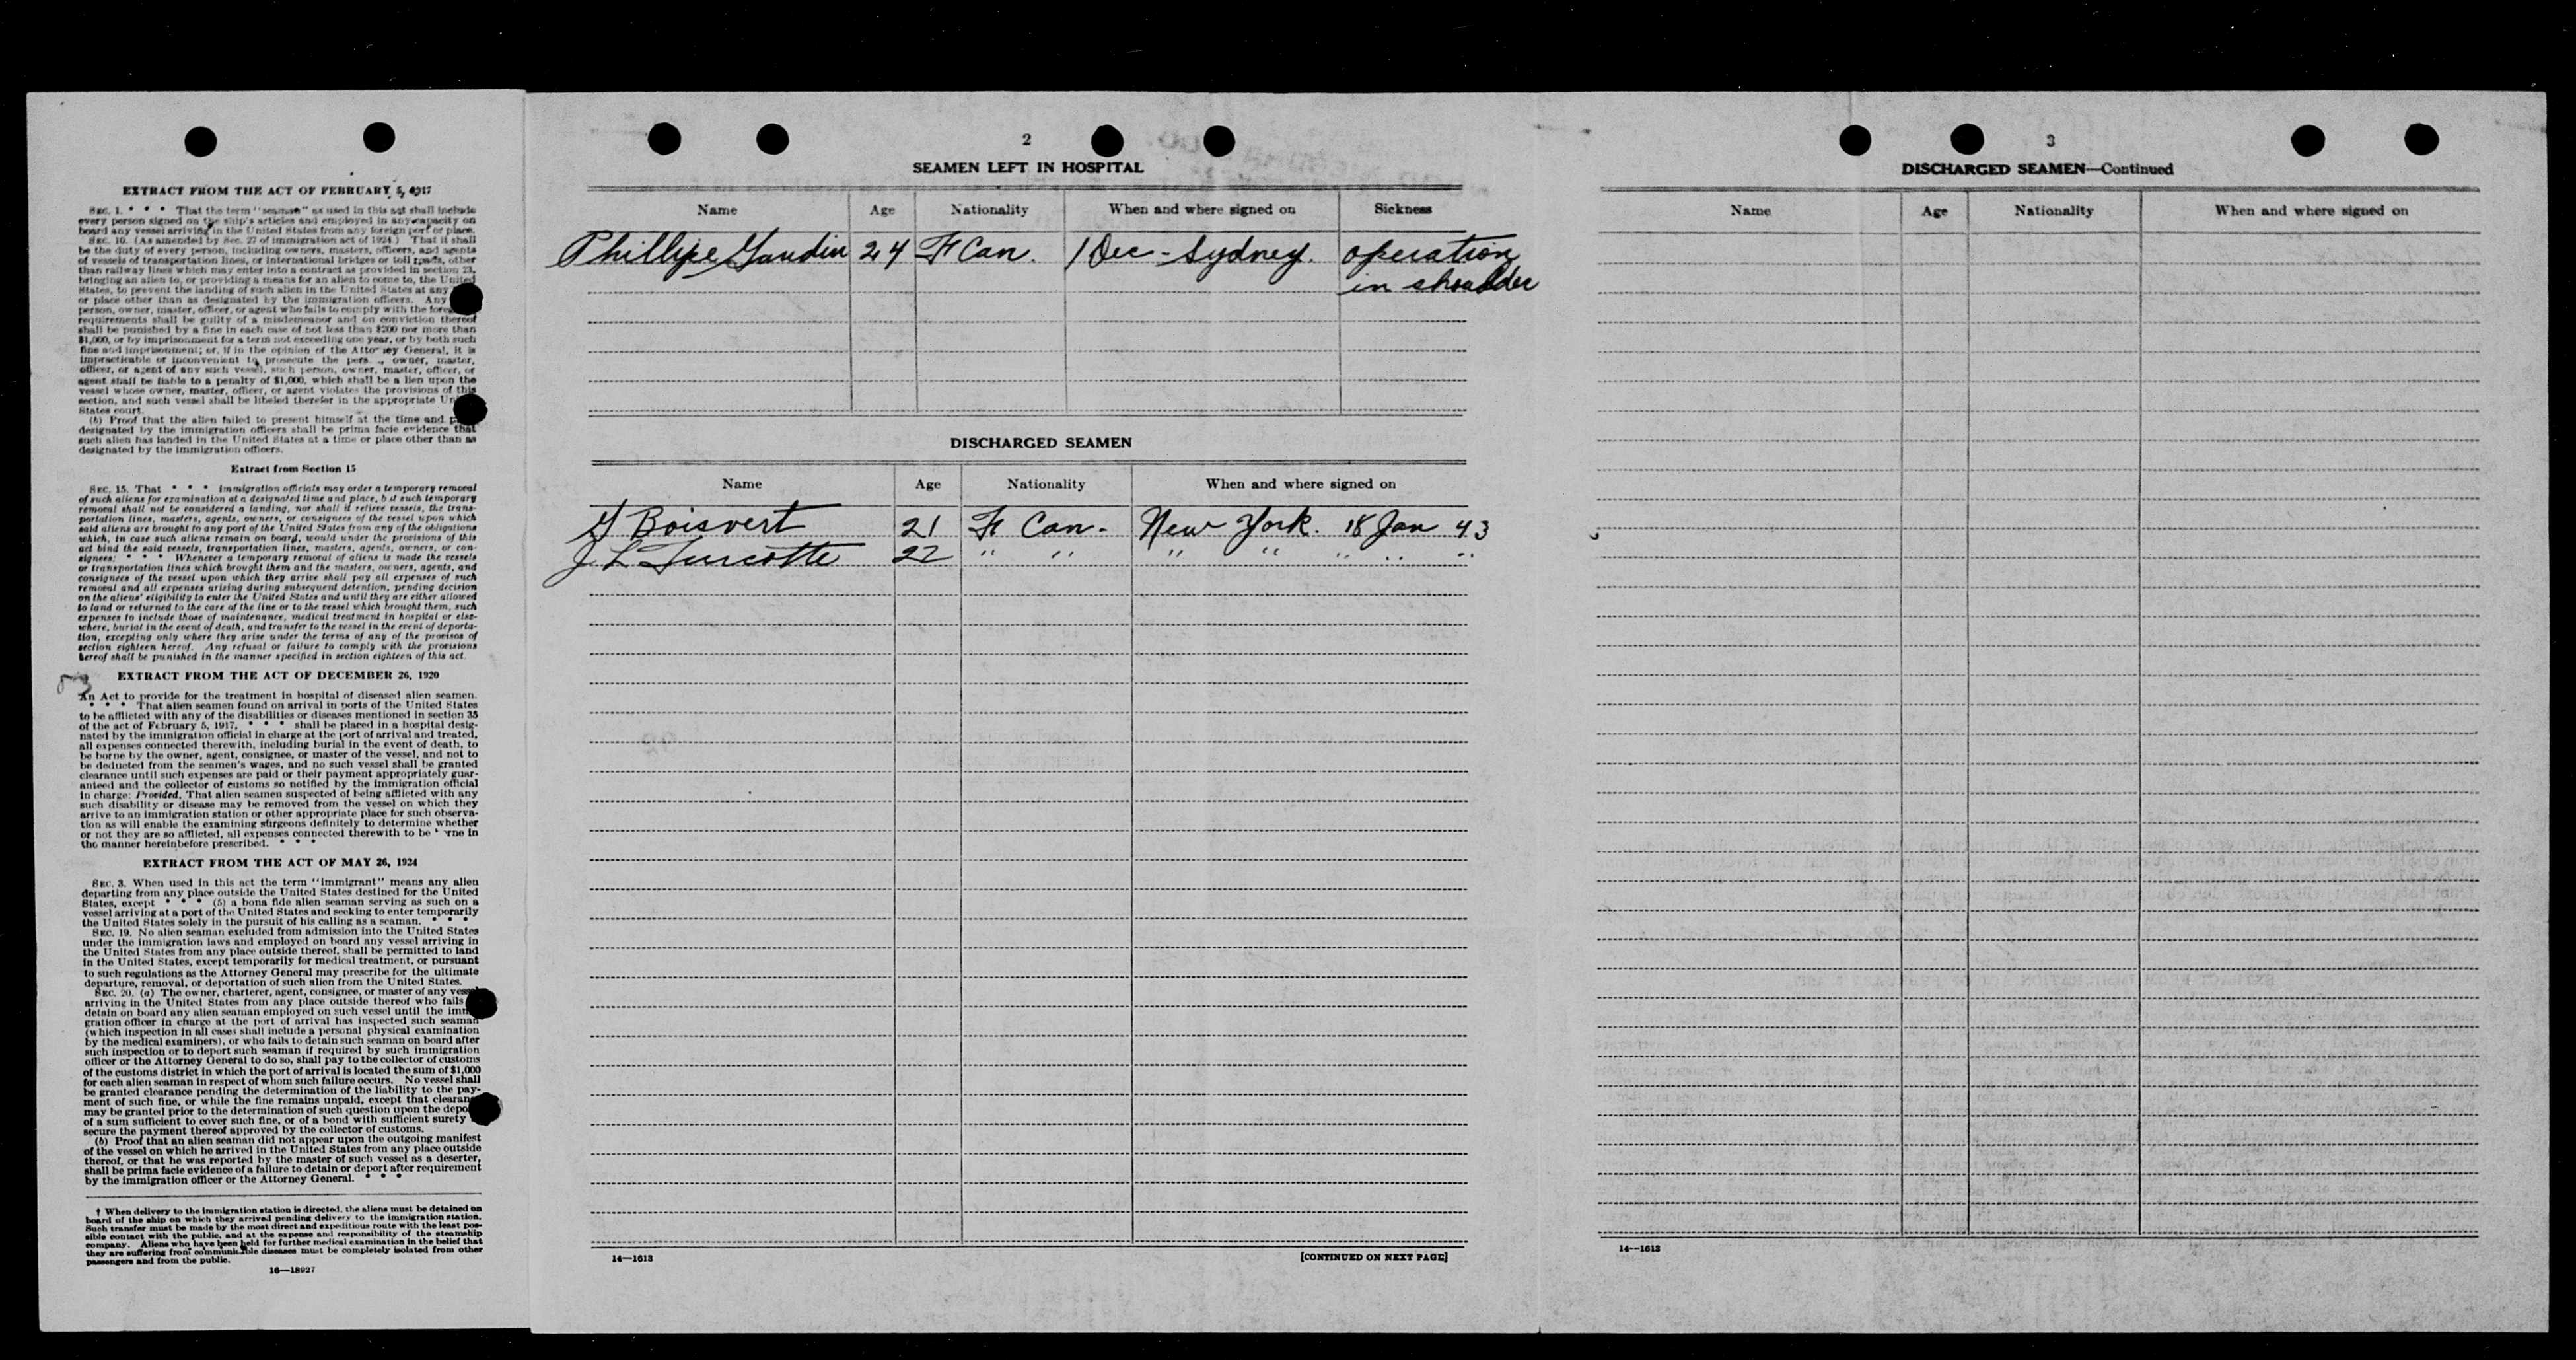 EXTRACT FROM THE ACT OF FEBRUARY 5, 1917
SEC. 1. * * * That the term "seaman" as used in this act shall include
every person signed on the ship's articles and employed in any capacity on
board any vessel arriving in the United States from any foreign port or place.
SEC. 10. (As amended by Sec. 27 of immigration act of 1924.) That it shall
be the duty of every person, including owners, masters, officers, and agents
of vessels of transportation lines, or international bridges or toll roads, other
than railway lines which may enter into a contract as provided in section 23,
bringing an alien to, or providing a means for an alien to come to, the United
States, to prevent the landing of such alien in the United States at any
or place other than as designated by the immigration officers. Any
person, owner, master, officer, or agent who fails to comply with the fore
requirements shall be guilty of a misdemeanor and on conviction thereof
shall be punished by a fine in each case of not less than $200 nor more than
$1,000, or by imprisonment for a term not exceeding one year, or by both such
fine and imprisonment; or, if in the opinion of the Attorney General, it is
impracticable or inconvenient to prosecute the pers , owner, master,
officer, or agent of any such vessel, such person, owner, master, officer, or
agent shall be liable to a penalty of $1,000, which shall be a lien upon the
vessel whose owner, master, officer, or agent violates the provisions of this
section, and such vessel shall be libeled therefor in the appropriate Un
States court.
(b) Proof that the alien failed to present himself at the time and p
designated by the immigration officers shall be prima facie evidence that
such alien has landed in the United States at a time or place other than as
designated by the immigration officers.
Extract from Section 15
SEC. 15. That * * * immigration officials may order a temporary removal
of such aliens for examination at a designated time and place, but such temporary
removal shall not be considered a landing, nor shall it relieve vessels, the trans-
portation lines, masters, agents, owners, or consignees of the vessel upon which
said aliens are brought to any port of the United States from any of the obligations
which, in case such aliens remain on board, would under the provisions of this
act bind the said vessels, transportation lines, masters, agents, owners, or con-
signees: * * * Whenever a temporary removal of aliens is made the vessels
or transportation lines which brought them and the masters, owners, agents, and
consignees of the vessel upon which they arrive shall pay all expenses of such
removal and all expenses arising during subsequent detention, pending decision
on the aliens' eligibility to enter the United States and until they are either allowed
to land or returned to the care of the line or to the vessel which brought them, such
expenses to include those of maintenance, medical treatment in hospital or else-
where, burial in the event of death, and transfer to the vessel in the event of deporta-
tion, excepting only where they arise under the terms of any of the provisos of
section eighteen hereof. Any refusal or failure to comply with the provisions
hereof shall be punished in the manner specified in section eighteen of this act.
EXTRACT FROM THE ACT OF DECEMBER 26, 1920
An Act to provide for the treatment in hospital of diseased alien seamen.
* * * That alien seamen found on arrival in ports of the United States
to be afflicted with any of the disabilities or diseases mentioned in section 35
of the act of February 5, 1917, * * * shall be placed in a hospital desig-
nated by the immigration official in charge at the port of arrival and treated,
all expenses connected therewith, including burial in the event of death, to
be borne by the owner, agent, consignee, or master of the vessel, and not to
be deducted from the seamen's wages, and no such vessel shall be granted
clearance until such expenses are paid or their payment appropriately guar-
anteed and the collector of customs so notified by the immigration official
in charge: Provided, That alien seamen suspected of being afflicted with any
such disability or disease may be removed from the vessel on which they
arrive to an immigration station or other appropriate place for such observa-
tion as will enable the examining surgeons definitely to determine whether
or not they are so afflicted, all expenses connected therewith to be rne in
the manner hereinbefore prescribed. * * *
EXTRACT FROM THE ACT OF MAY 26, 1924
SEC. 3. When used in this act the term "immigrant" means any alien
departing from any place outside the United States destined for the United
States, except * * * (5) a bona fide alien seaman serving as such on a
vessel arriving at a port of the United States and seeking to enter temporarily
the United States solely in the pursuit of his calling as a seaman. * * *
SEC. 19. No alien seaman excluded from admission into the United States
under the immigration laws and employed on board any vessel arriving in
the United States from any place outside thereof, shall be permitted to land
in the United States, except temporarily for medical treatment, or pursuant
to such regulations as the Attorney General may prescribe for the ultimate
departure, removal, or deportation of such alien from the United States.
SEC. 20. (a) The owner, charterer, agent, consignee, or master of any vessel
arriving in the United States from any place outside thereof who fails
detain on board any alien seaman employed on such vessel until the imm
gration officer in charge at the port of arrival has inspected such seaman
(which inspection in all cases shall include a personal physical examination
by the medical examiners), or who fails to detain such seaman on board after
such inspection or to deport such seaman if required by such immigration
officer or the Attorney General to do so, shall pay to the collector of customs
of the customs district in which the port of arrival is located the sum of $1,000
for each alien seaman in respect of whom such failure occurs. No vessel shall
be granted clearance pending the determination of the liability to the pay-
ment of such fine, or while the fine remains unpaid, except that clearan
may be granted prior to the determination of such question upon the depo
of a sum sufficient to cover such fine, or of a bond with sufficient surety
secure the payment thereof approved by the collector of customs.
(b) Proof that an alien seaman did not appear upon the outgoing manifest
of the vessel on which he arrived in the United States from any place outside
thereof, or that he was reported by the master of such vessel as a deserter,
shall be prima facie evidence of a failure to detain or deport after requirement
by the immigration officer or the Attorney General. * * *
† When delivery to the immigration station is directed, the aliens must be detained on
board of the ship on which they arrived pending delivery to the immigration station.
Such transfer must be made by the most direct and expeditious route with the least pos-
sible contact with the public, and at the expense and responsibility of the steamship
company. Aliens who have been held for further medical examination in the belief that
they are suffering from communicable diseases must be completely isolated from other
passengers and from the public.
16—18927
2
SEAMEN LEFT IN HOSPITAL
Name Age Nationality When and where signed on Sickness
Phillipe Gaudin 24 F Can. 1 Dec - Sydney. operation
in shoulder
DISCHARGED SEAMEN
Name Age Nationality When and where signed on
G Boisvert 21 Fr Can- New York. 18 Jan 43
J. L Turcotte 22 " " " " " " "
14—1613
[CONTINUED ON NEXT PAGE]
3
DISCHARGED SEAMEN—Continued
Name Age Nationality When and where signed on
14—1613